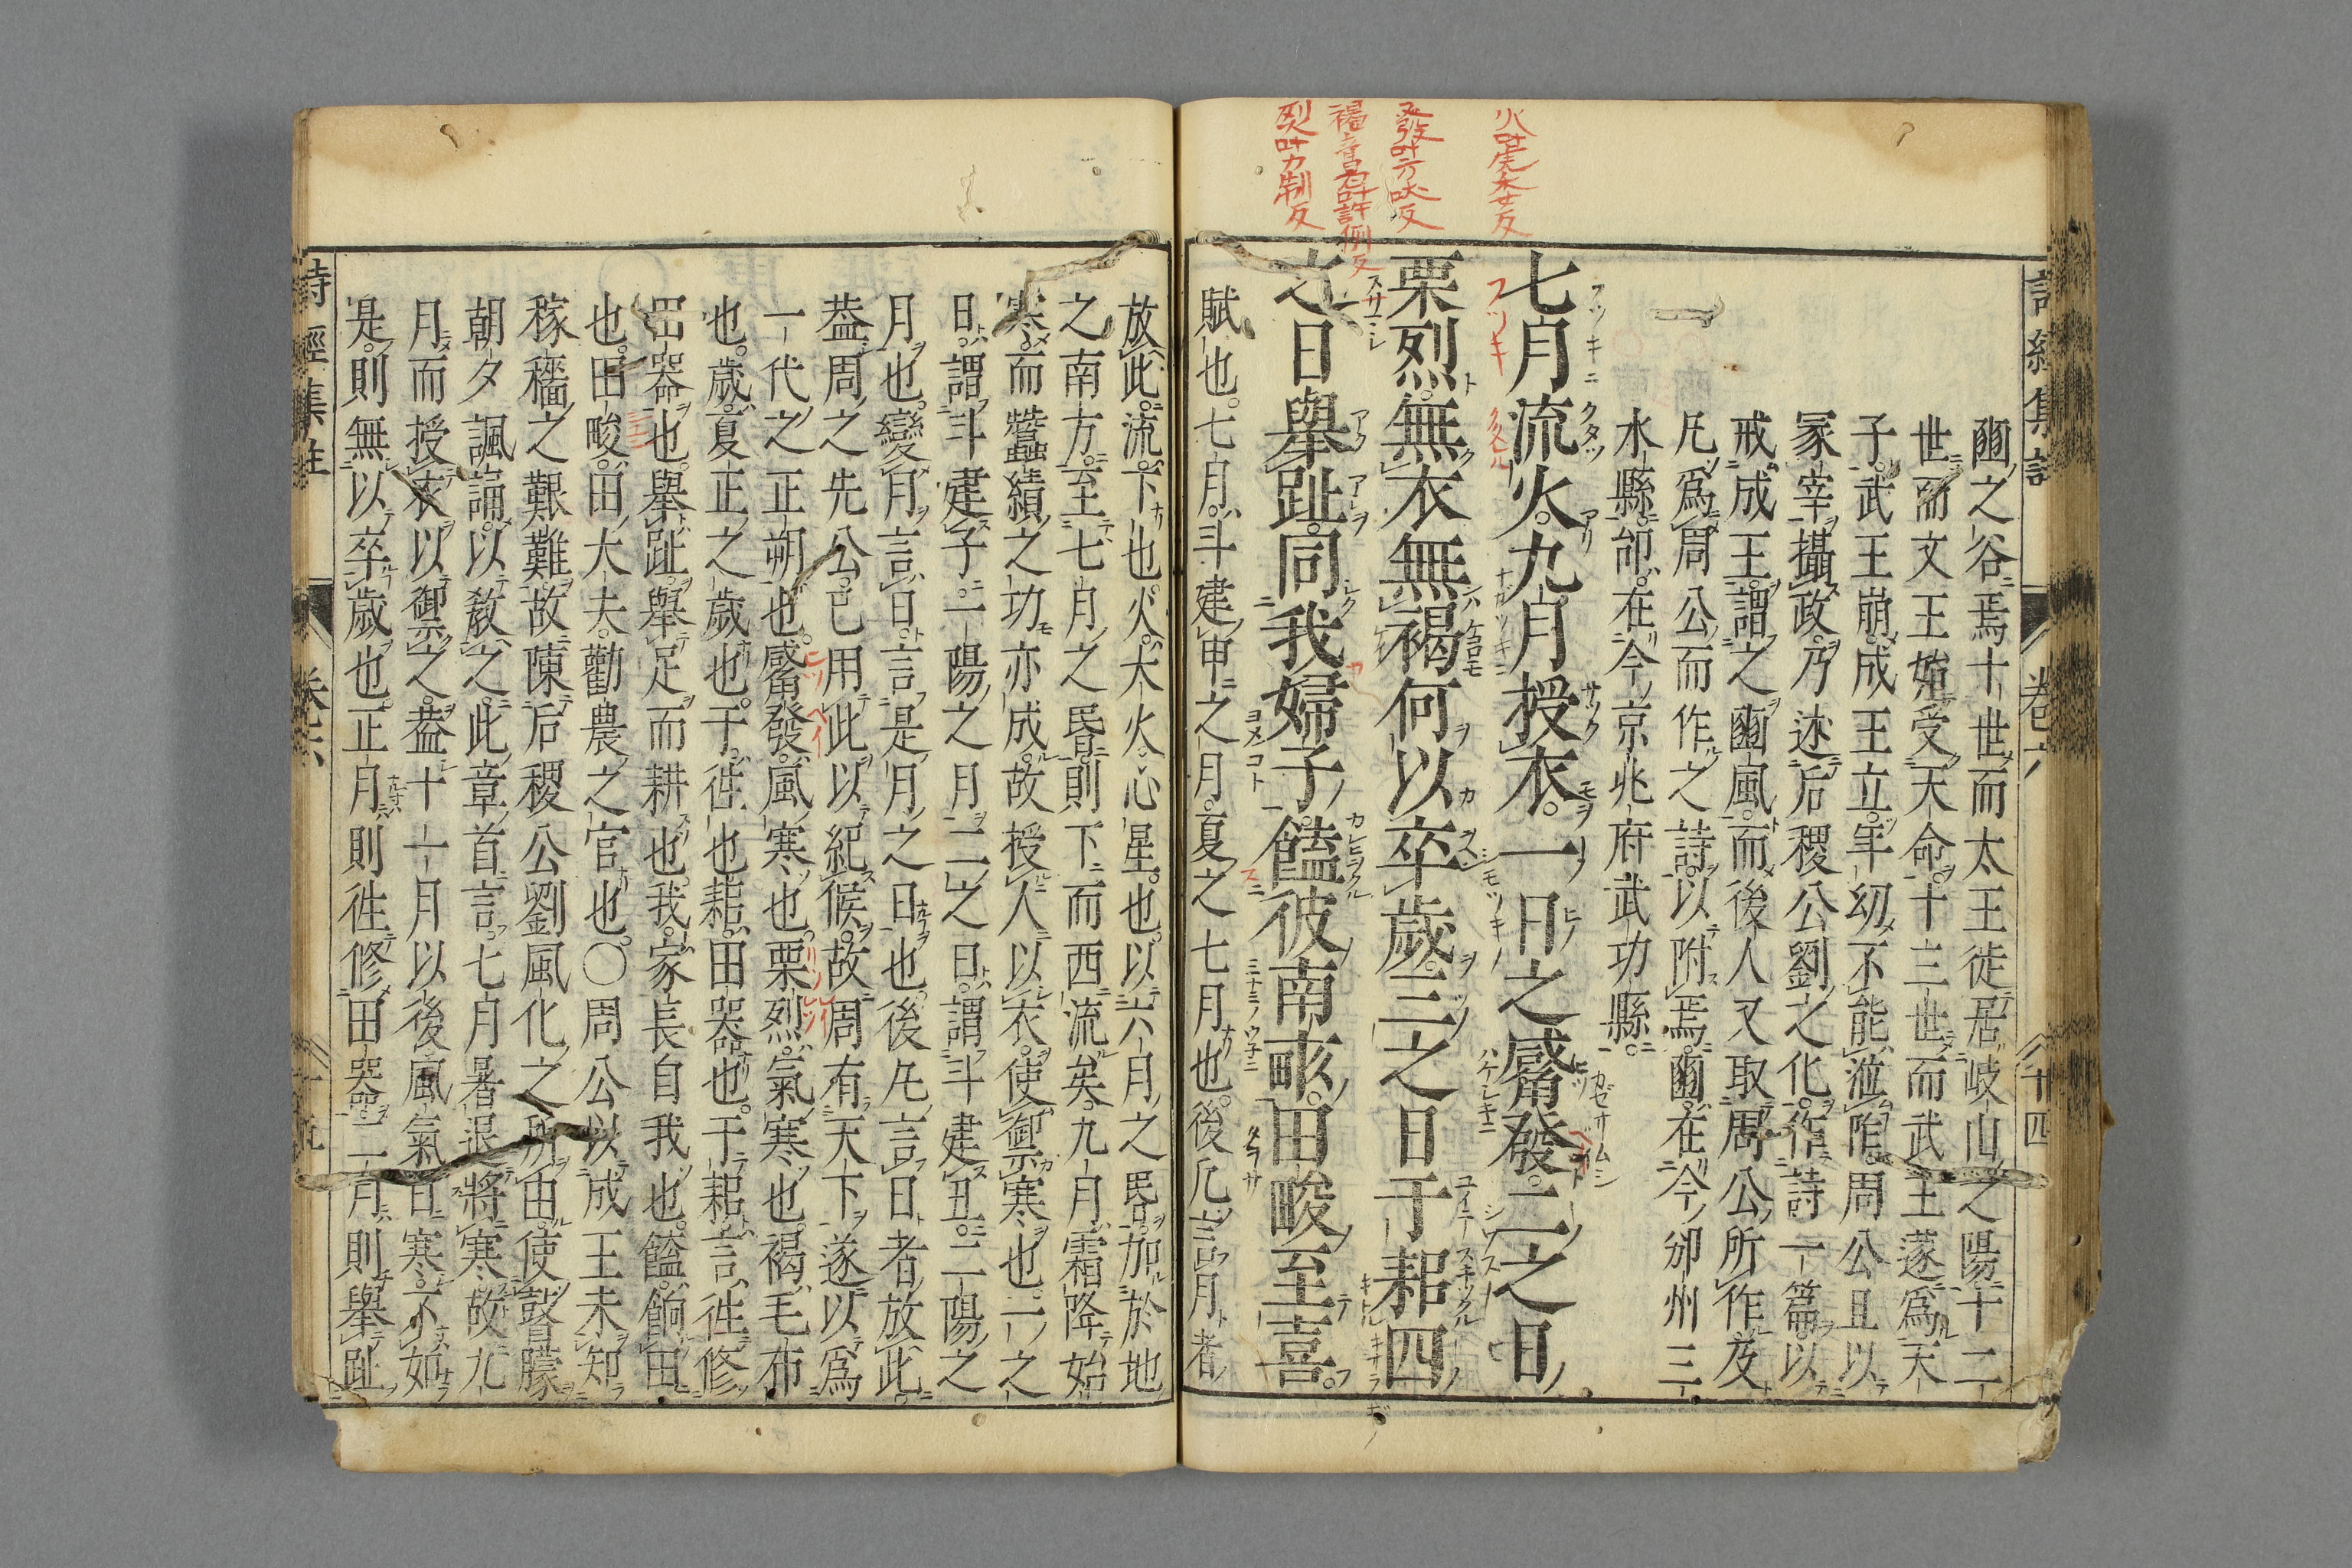 火叶虎委反
發叶方吠反
褐音曷叶許例反
烈叶力制反
豳之谷焉十世而太王徙居岐山之陽十二
世而文王始受天命十三世而武王遂爲天
子武王崩成王立年幼不能涖阼周公旦以
冢宰攝政乃述后稷公劉之化作詩一篇以
戒成王謂之豳風而後人又取周公所作及
凡爲周公而作之詩以附焉豳在今邠州三
水縣邰在今京兆府武功縣
七月流火九月授衣一之日觱發二之日
栗烈無衣無褐何以卒歲三之日于耜四
之日舉趾同我婦子饁彼南畝田畯至喜
賦也七月斗建申之月夏之七月也後凡言月者
放此流下也火大火心星也以六月之昏加於地
之南方至七月之昏則下而西流矣九月霜降始
寒而蠶績之功亦成故授人以衣使禦寒也一之
日謂斗建子一陽之月二之日謂斗建丑二陽之
月也變月言日言是月之日也後凡言日者放此
葢周之先公已用此以紀候故周有天下遂以爲
一代之正朔也觱發風寒也栗烈氣寒也褐毛布
也歲夏正之歲也于徃也耜田器也于耜言徃修
田器也舉趾舉足而耕也我家長自我也饁餉田
也田畯田大夫勸農之官也〇周公以成王未知
稼穡之艱難故陳后稷公劉風化之所由使瞽矇
朝夕諷誦以教之此章首言七月暑退將寒故九
月而授衣以禦之葢十一月以後風氣日寒不如
是則無以卒歲也正月則徃修田器二月則舉趾
詩經集註
卷六
十四